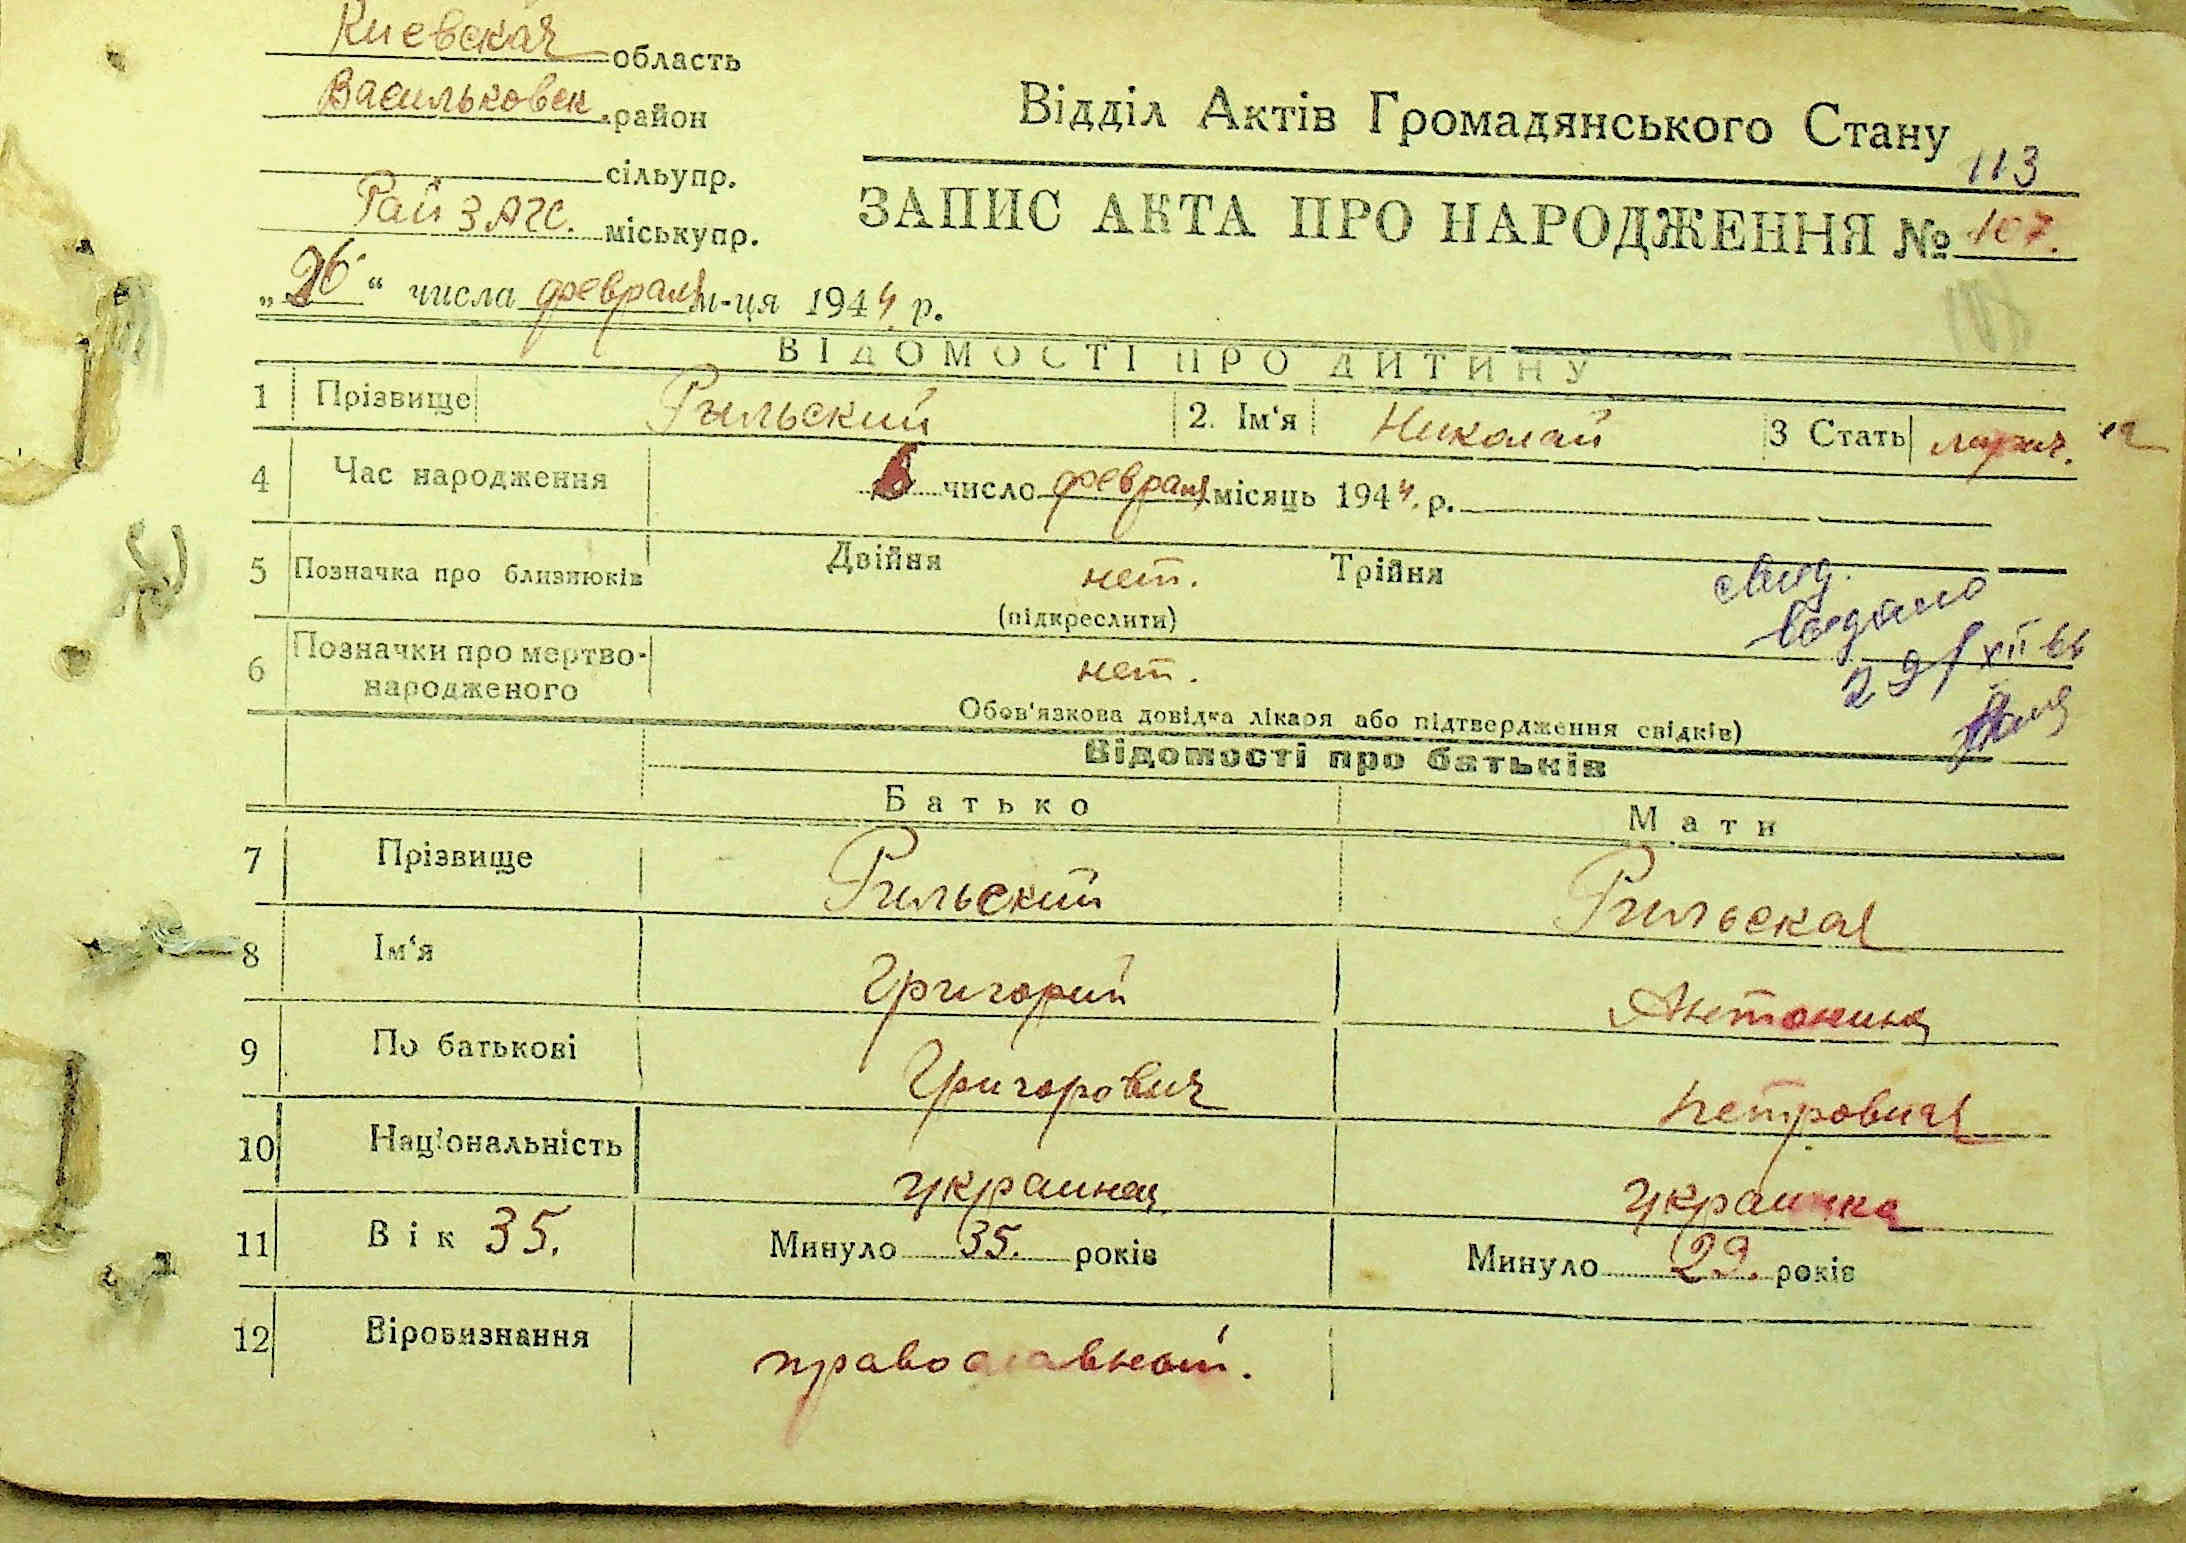 Киевская область
Васильковск. район
сільупр.
Рай ЗАГС. міськупр.
„26“ числа февраля м-ця 1944 р.
Відділ Актів Громадянського Стану
113
ЗАПИС АКТА ПРО НАРОДЖЕННЯ № 107.
ВІДОМОСТІ ПРО ДИТИНУ
1 Прізвище Рыльский 2. Ім‘я Николай 3 Стать
4 Час народження 6 число февраля місяць 1944. р.
5 Позначка про близнюків Двійня нет. Трійня
(підкреслити)
6 Позначки про мертво-
народженого нет.
Обов‘язкова довідка лікаря або підтвердження свідків)
выдано
29/XII 66
Відомості про батьків
Батько Мати
7 Прізвище Рыльский Рыльская
8 Ім‘я Григорий Антонина
9 По батькові Григорович Петровна
10 Національність украинец украинка
11 Вік 35. Минуло 35. років Минуло 29. років
12 Віровизнання православный.